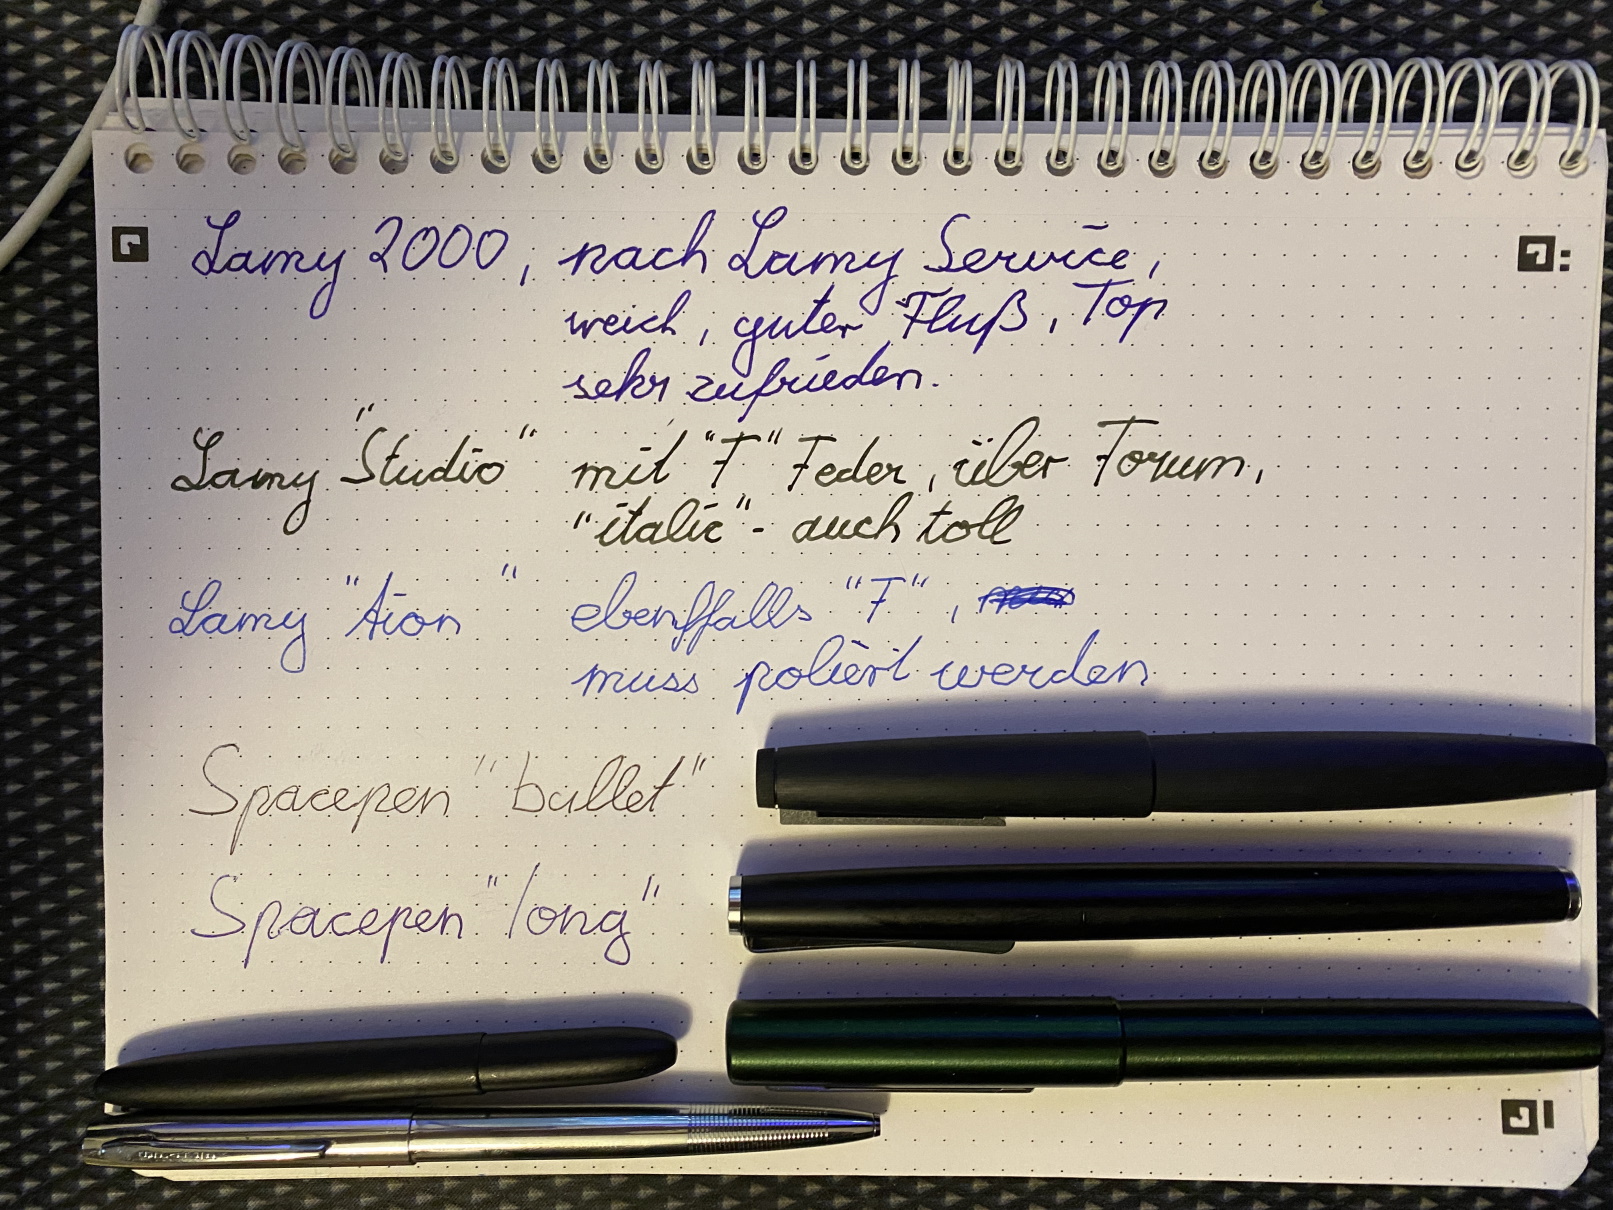 Lamy 2000, nach Lamy Service,
weich, guter Fluß, Top
sehr zufrieden.
Lamy "Studio" mit "F" Feder, über Forum,
"italic" - auch toll
Lamy "Aion" ebenffalls "F",
muss poliert werden
Spacepen "bullet"
Spacepen "long"